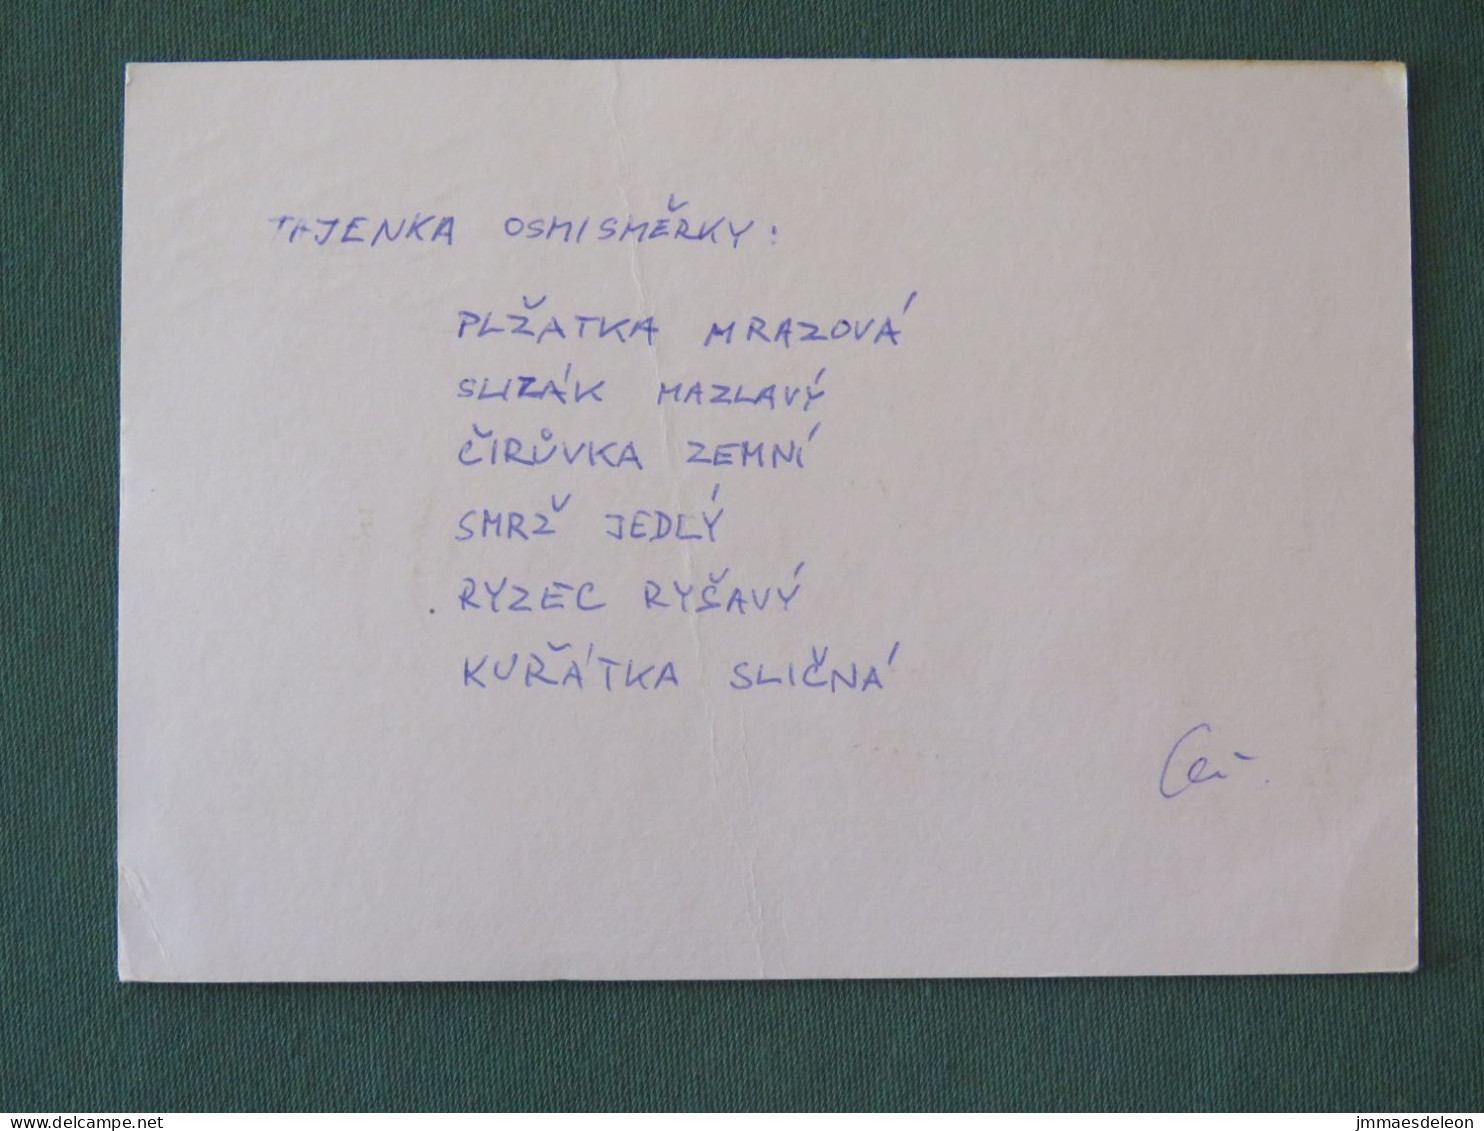 TAJENKA OSMISMĚRKY:
PLŽATKA MRAZOVÁ
SLIZÁK MAZLAVÝ
ČIRŮVKA ZEMNÍ
SMRŽ JEDLÝ
RYZEC RYŠAVÝ
KUŘÁTKA SLIČNÁ
www.delcampe.net
jmmaesdeleon